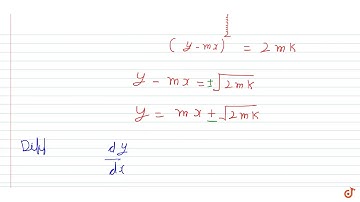 (y - mx)² = 2mk
y - mx = ±√2mk
y = mx ± √2mk
Diff dy/dx